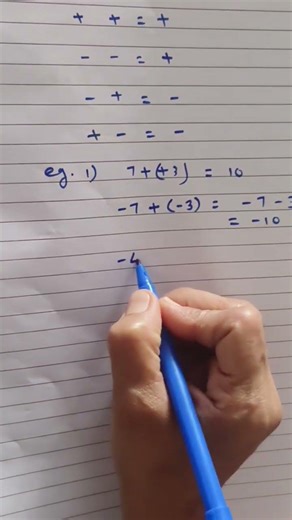 + + = +
- - = +
- + = -
+ - = -
eg. 1) 7 + (+3) = 10
-7 + (-3) = -7 - 3
= -10
-4